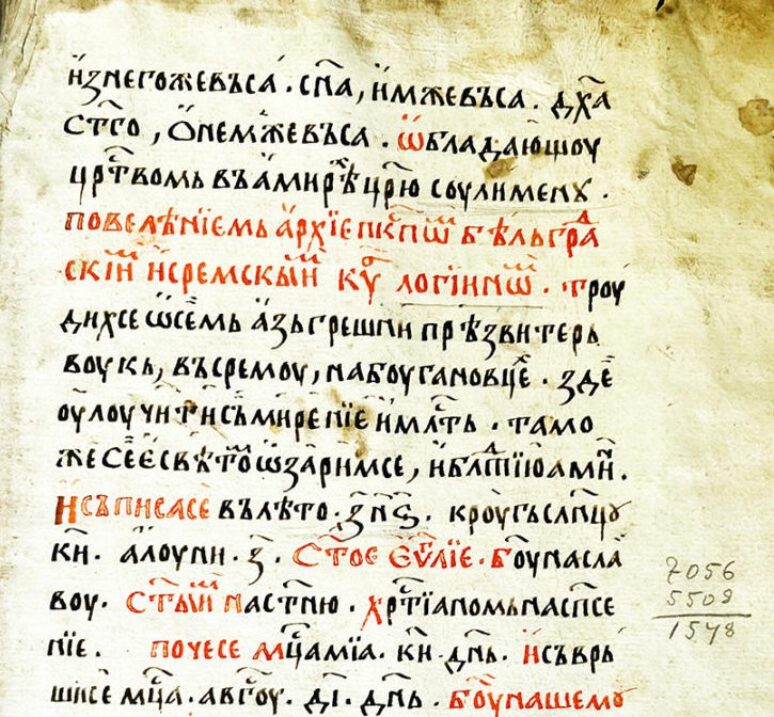 и҆знегѡжевъса . сп҃а , и҆мжевъса . дх҃а
ст҃го , ѻ҆немжевъса . ѡ҆бладаю҆щоу
цр҃твомь въа҆мирѣ цр҃ю соулименꙋ .
повелѣнїемь а҆рхїепк҃пѡ҅м бѣльграⷣ
скїи҅м и҆сремскыи҅м кѵⷬ логїннѡ҅м . троу
дихсе ѡ҆семь а҆зьгрешни прѣзвитерь
воукь , въсремоу , набоугановцⷯе . зде
оулоучити съмиренїе и҆млⷭть . тамо
же сеⷣе свѣтоⷨ ѡ҆заримсе , и҆блⷣтїю аминⷩ .
И҆съписасе вълѣто . ҂зн҃ѕ . кроугьслн҃цꙋ
кн҃ . а҆лоуни . з҃ . Ст҃ое е҆ѵⷢ҇лїе . б҃оунасла
воу . Ст҃ыи҅м настн҃ю . хрⷭтїаномьнасп҃се
нїе . почесе мц҃амїа . кн҃ . дн҃ь . и҆съврь
шисе мц҃а . авгоу҆ . дı҃ . дн҃ь . б҃оунашемꙋ
7056
5508
1548